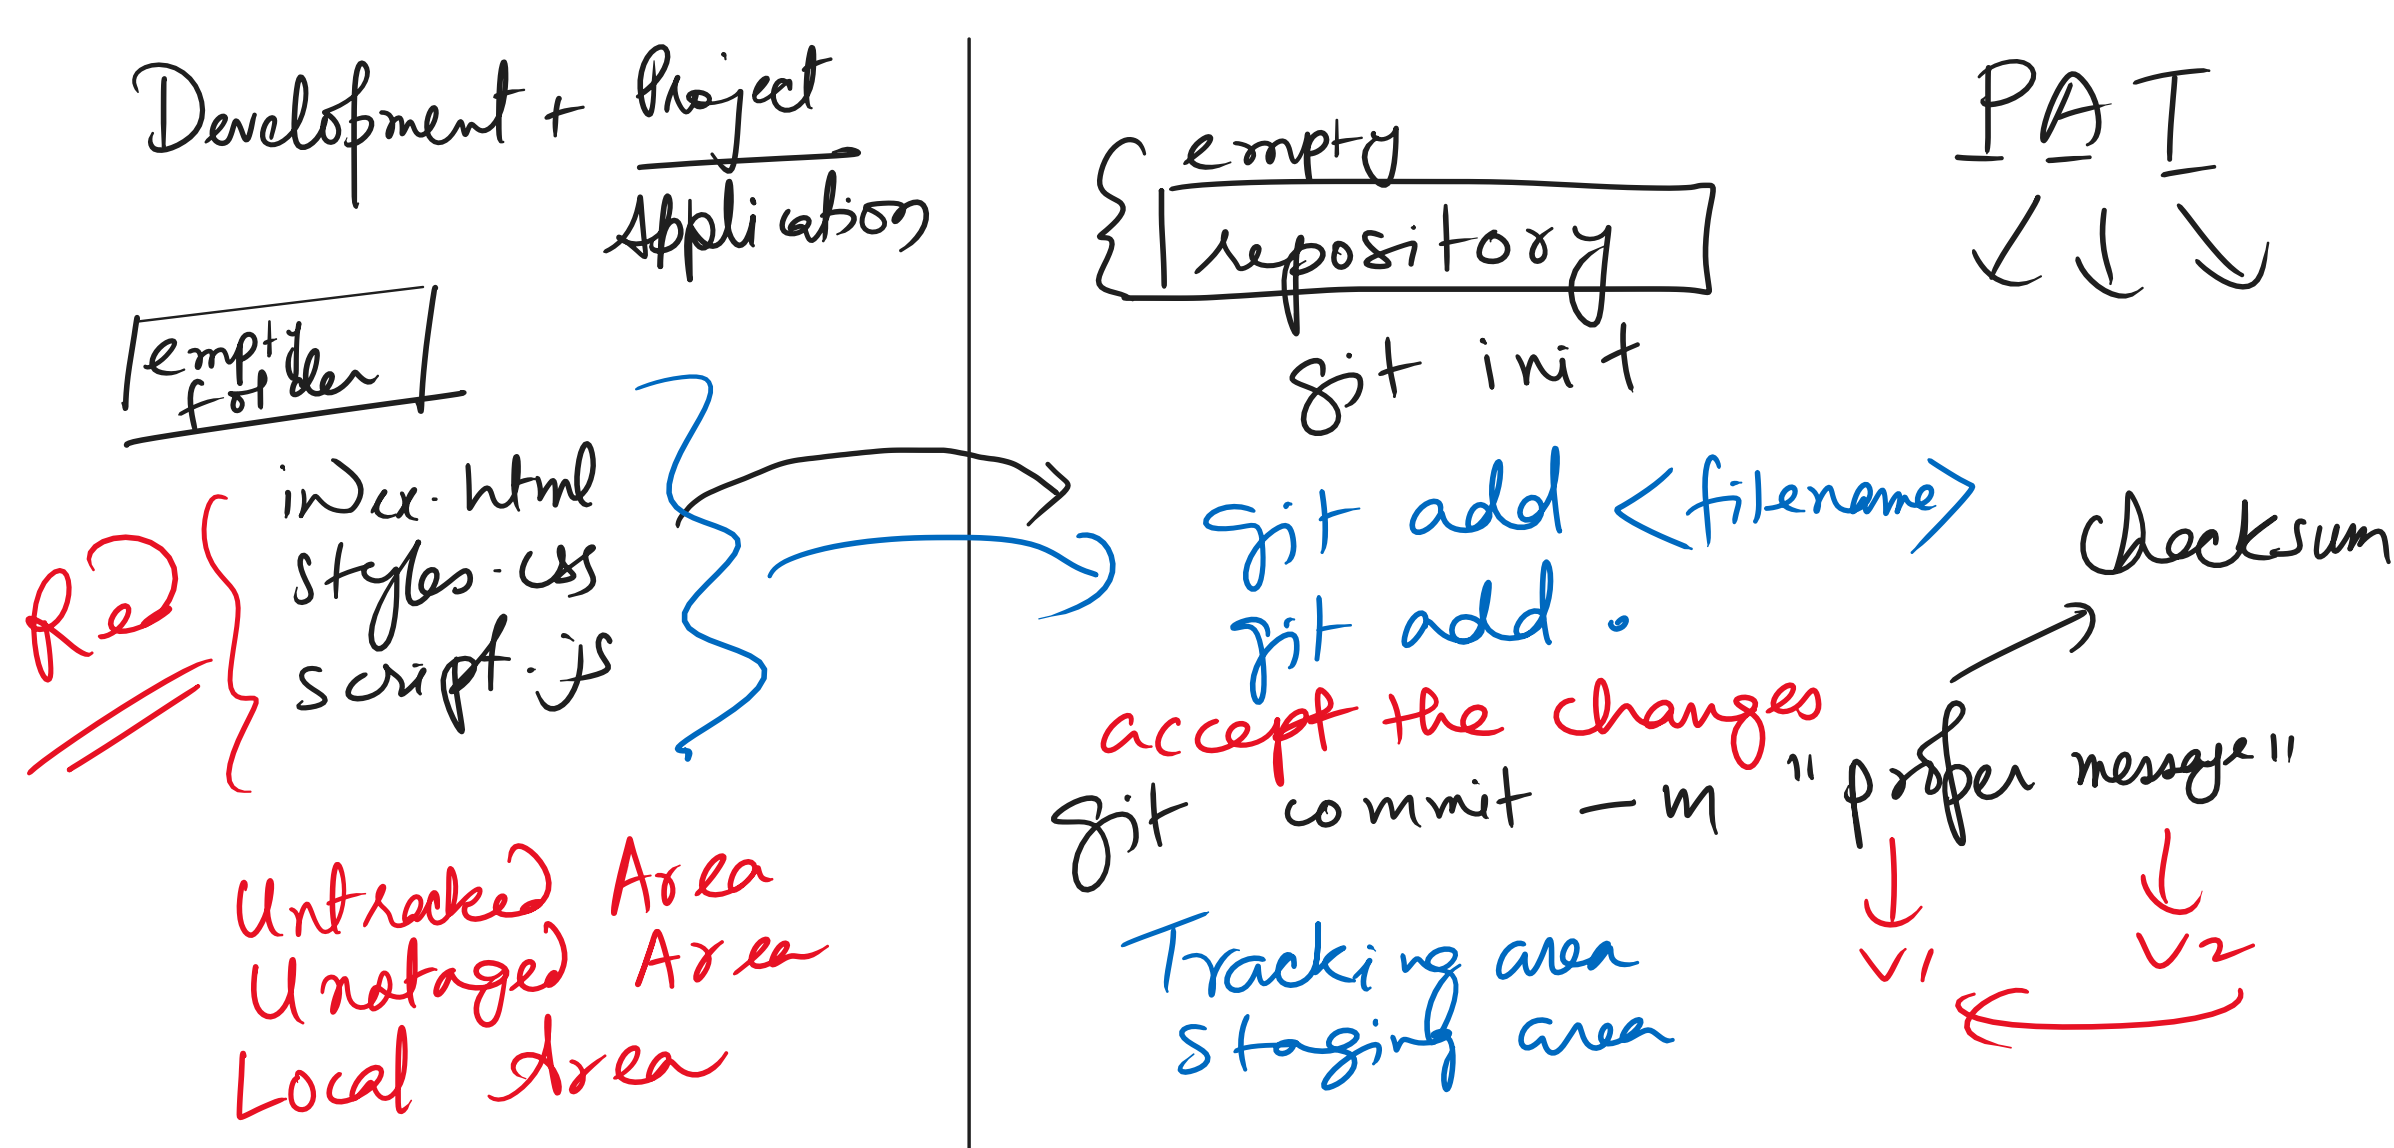 Development + Project
Application
empty
folder
index.html
styles.css
script.js
Red
Untracked Area
Unstaged Area
Local Area
empty
repository
git init
git add <filename>
git add .
accept the changes
git commit -m "proper message"
Tracking area
staging area
PAT
checksum
v1
v2